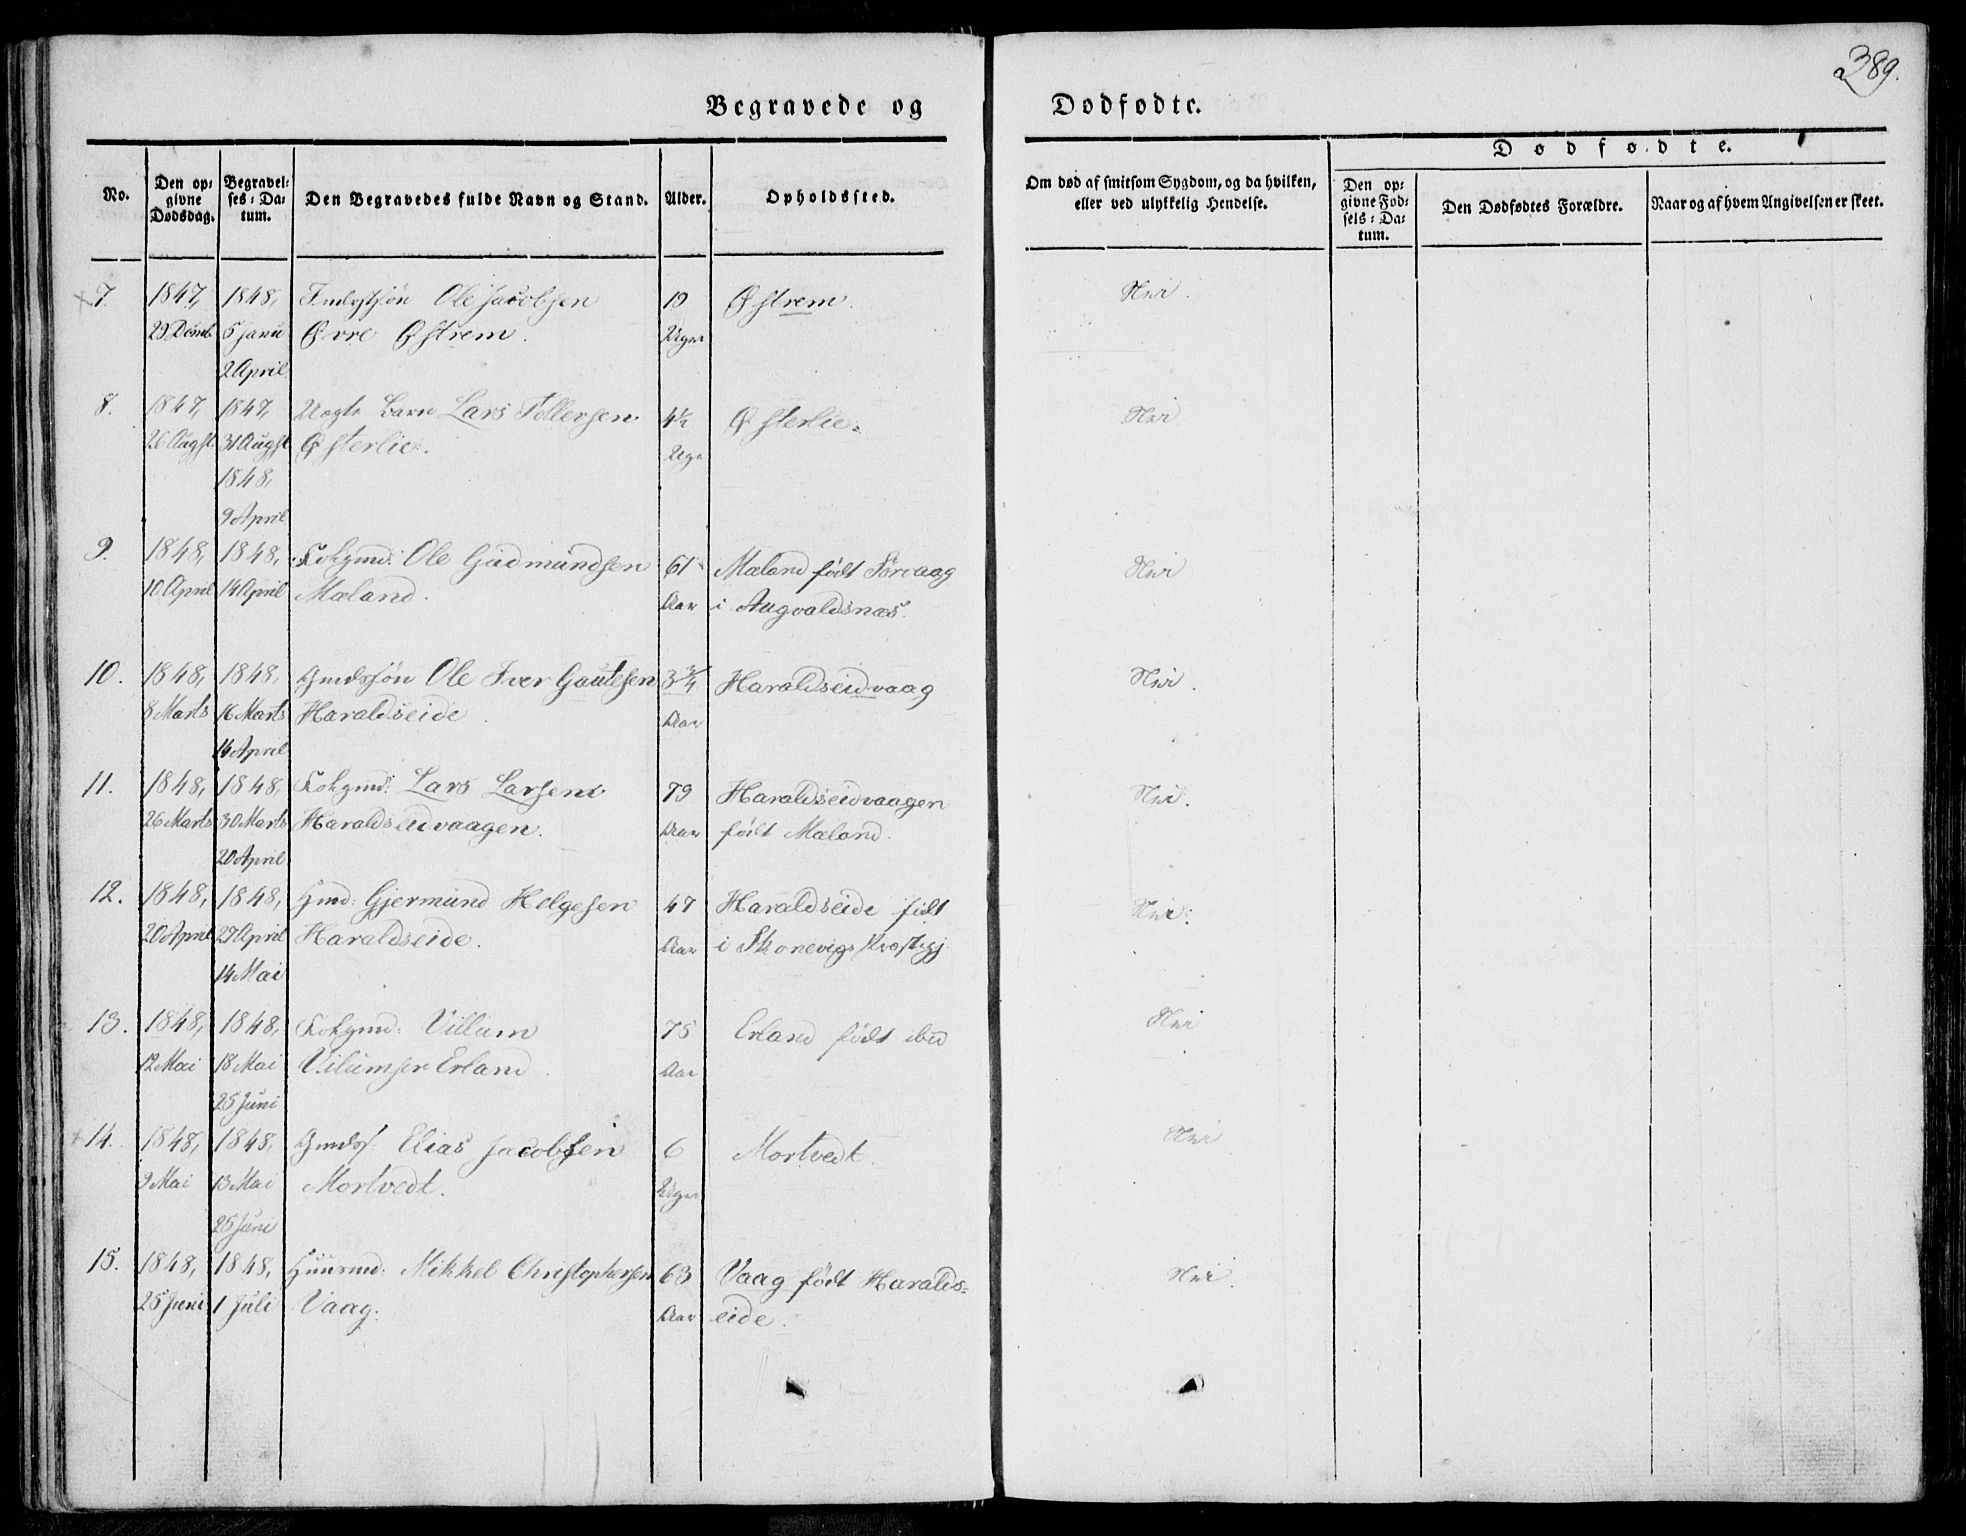 389.
Begravede og Dødfødte.
No.
Den op=
givne
Dødsdag.
Begravel=
ses=Da=
tum.
Den Begravedes fulde Navn og Stand.
Alder.
Opholdssted.
Om død af smitsom Sygdom, og da hvilken,
eller ved ulykkelig Hendelse.
Dødfødte.
Den op=
givne Fød=
sels=Da=
tum.
Den Dødfødtes Forældre.
Naar og af hvem Angivelsen er skeet.
7. 1847, 1848, Ole Jacobsen 19 Østrem. Nei.
29 Decmb. 5 Janu Øvre Østrem. Uger
2 April
8. 1847, 1847, Uægte Barn Lars Tollevsen 4½ Østerlie. Nei
26 Augst. 31 Augst Østerlie. Uge
1848,
9 April
9. 1848, 1848, Folgmd: Ole Gudmundsen 61 Mæland født Førvaag Nei
10 April 14 April Mæland. Aar i Augvaldsnæs.
10. 1848, 1848, Gmdssøn Ole Iver Gautesen 3¾ Haraldseidvaag Nei.
8 Marts 16 Marts Haraldseide. Aar
14 April
11. 1848, 1848, Folgmd: Lars Larsen 79 Haraldseidvaagen Nei.
26 Marts 30 Marts Haraldseidvaagen. Aar født Mæland.
20 April
12. 1848, 1848, Gmd: Gjermund Helgesen 47 Haraldseide født Nei.
20 April 27 April Haraldseide. Aar i Skonevigs Præstegj
14 Mai
13. 1848, 1848, Folgmd: Villum 75 Erland født ibd Nei
12 Mai 18 Mai Vilumsen Erland. Aar
25 Juni
14. 1848, 1848, Gmdss: Elias Jacobsen 6 Mortvedt. Nei
9 Mai 13 Mai Mortvedt. Uger
25 Juni
15. 1848, 1848, Huusmd: Mikkel Christophersen 63 Vaag født Haralds= Nei.
25 Juni 1 Juli Vaag. Aar eide.